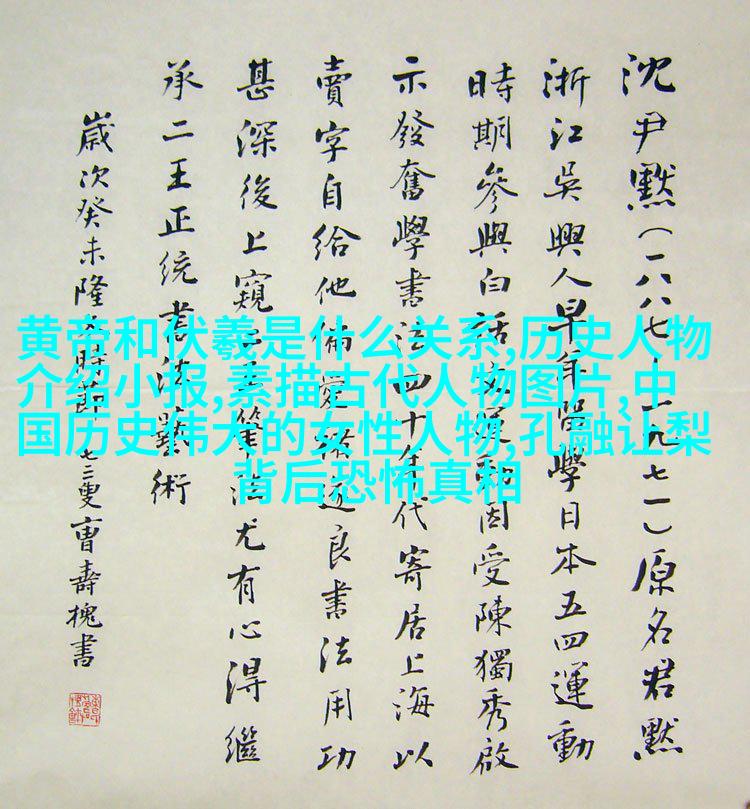 黄帝和伏羲是什么关系,历史人物
介绍小报,素描古代人物图片,中
国历史伟大的女性人物,孔融让梨
背后恐怖真相
沈尹默(一八八七-一九七一)原名君默
浙江吳興人早年留學日本五四運動
時期參與白話文運動因受陳獨秀啟
示發奮學書法四十年代寄居上海以
賣字自給他偏愛褚遂良書法用功
甚深後上窺筆法尤有心得繼
承二王正統書法藝術
歲次癸未隆冬時節叟曹壽槐書